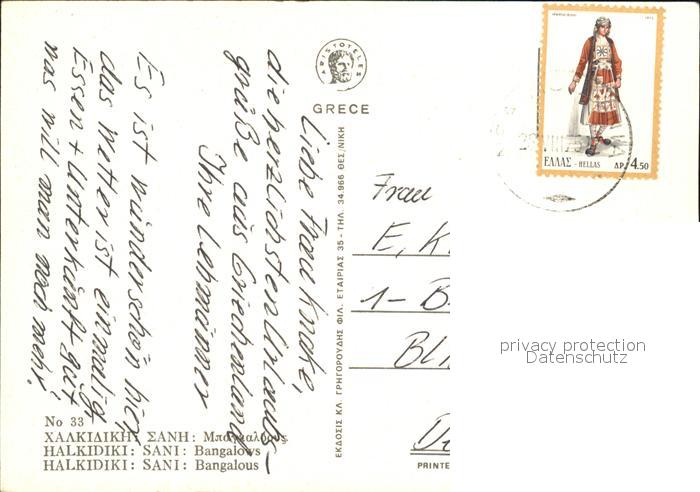 ARISTOTELES
GRECE
Liebe Frau
die herzlichsten Urlaubs-
grüße aus Griechenland
Ihre
Es ist wunderschön hier,
das Wetter ist einmalig
Essen + Unterkunft gut
was will man noch mehr!
ΕΚΔΟΣΙΣ ΚΛ. ΓΡΗΓΟΡΟΥΔΗΣ ΦΙΛ. ΕΤΑΙΡΙΑΣ 35 - ΤΗΛ. 34.966 ΘΕΣ/ΝΙΚΗ
ΕΛΛΑΣ - HELLAS ΔΡ. 4.50
Frau
E, K
1-B
privacy protection
Datenschutz
No 33
ΧΑΛΚΙΔΙΚΗ: ΣΑΝΗ: Μπαγκαλόους
HALKIDIKI: SANI: Bangalows
HALKIDIKI: SANI: Bangalous
PRINTE